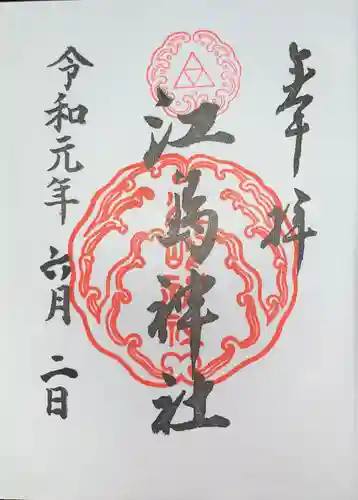 奉拝
江島神社
令和元年六月二日